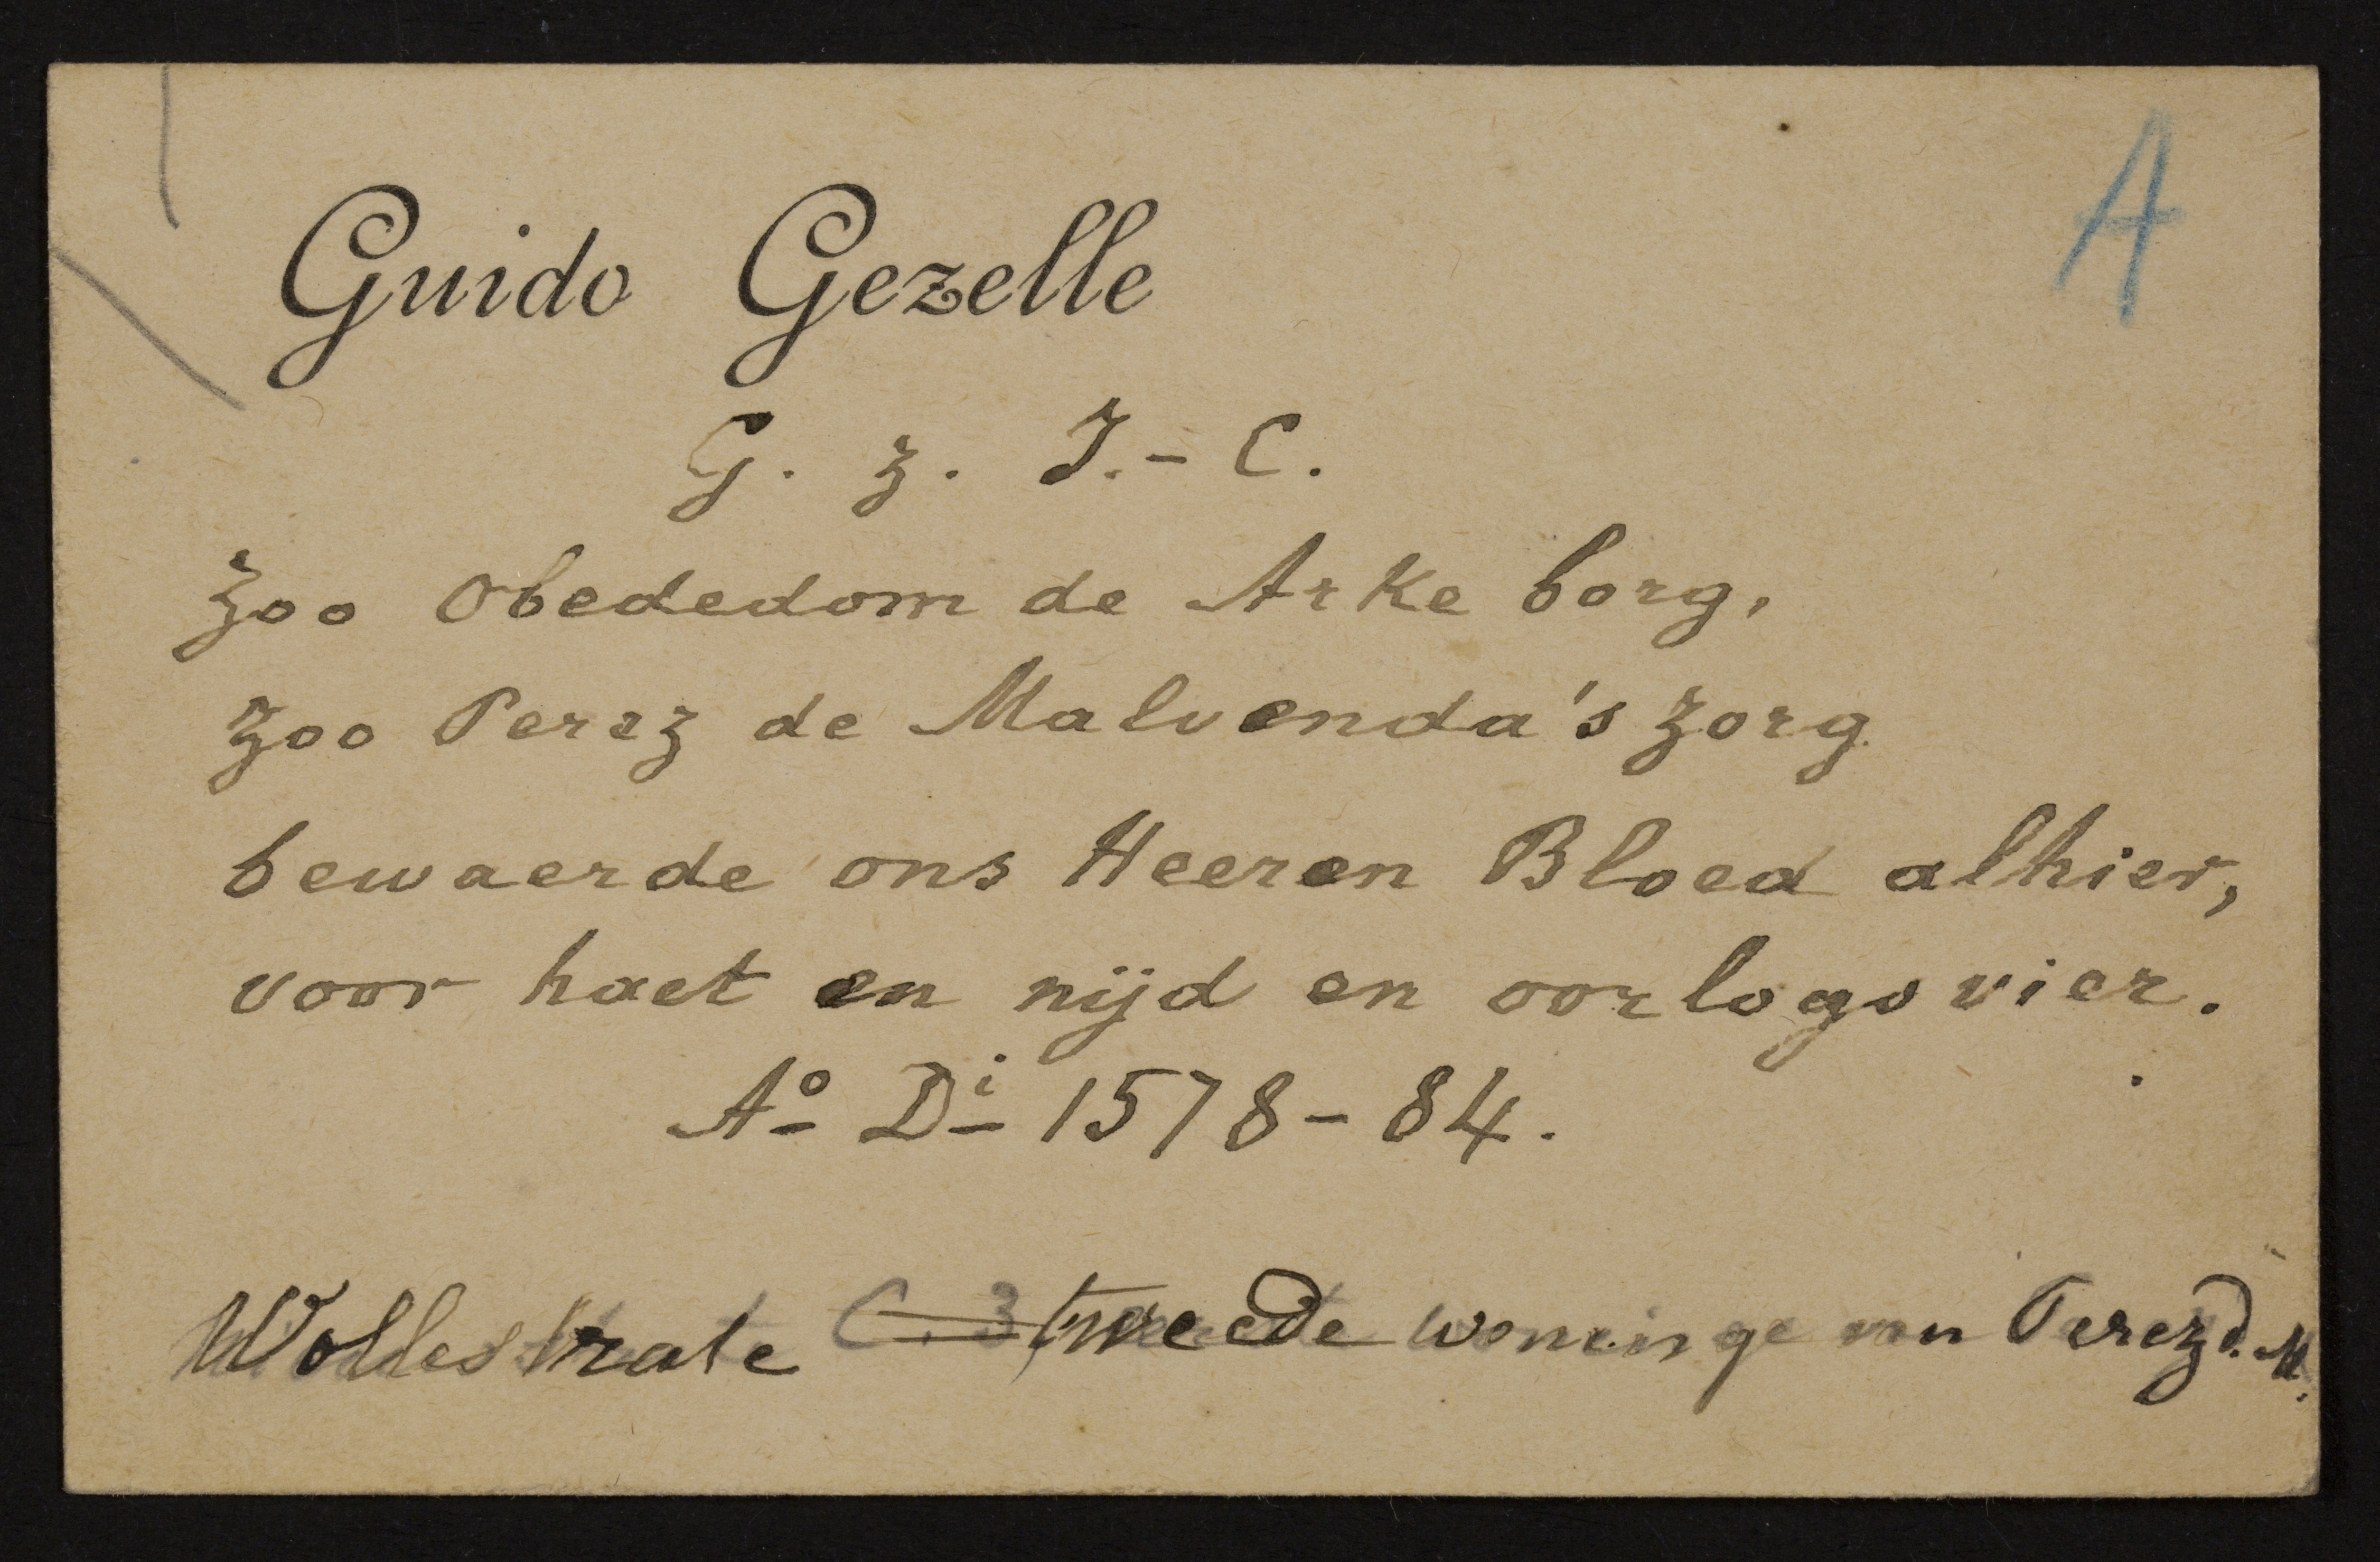 A
Guido Gezelle
G. z. J.-C.
Zoo Obededom de Arke borg,
zoo Perez de Malvenda's zorg
bewaerde ons Heeren Bloed alhier,
voor haet en nijd en oorlogsvier.
Aº Dⁱ 1578-84.
Wollestrate C. 3 tweede woninge van Perez d. M.